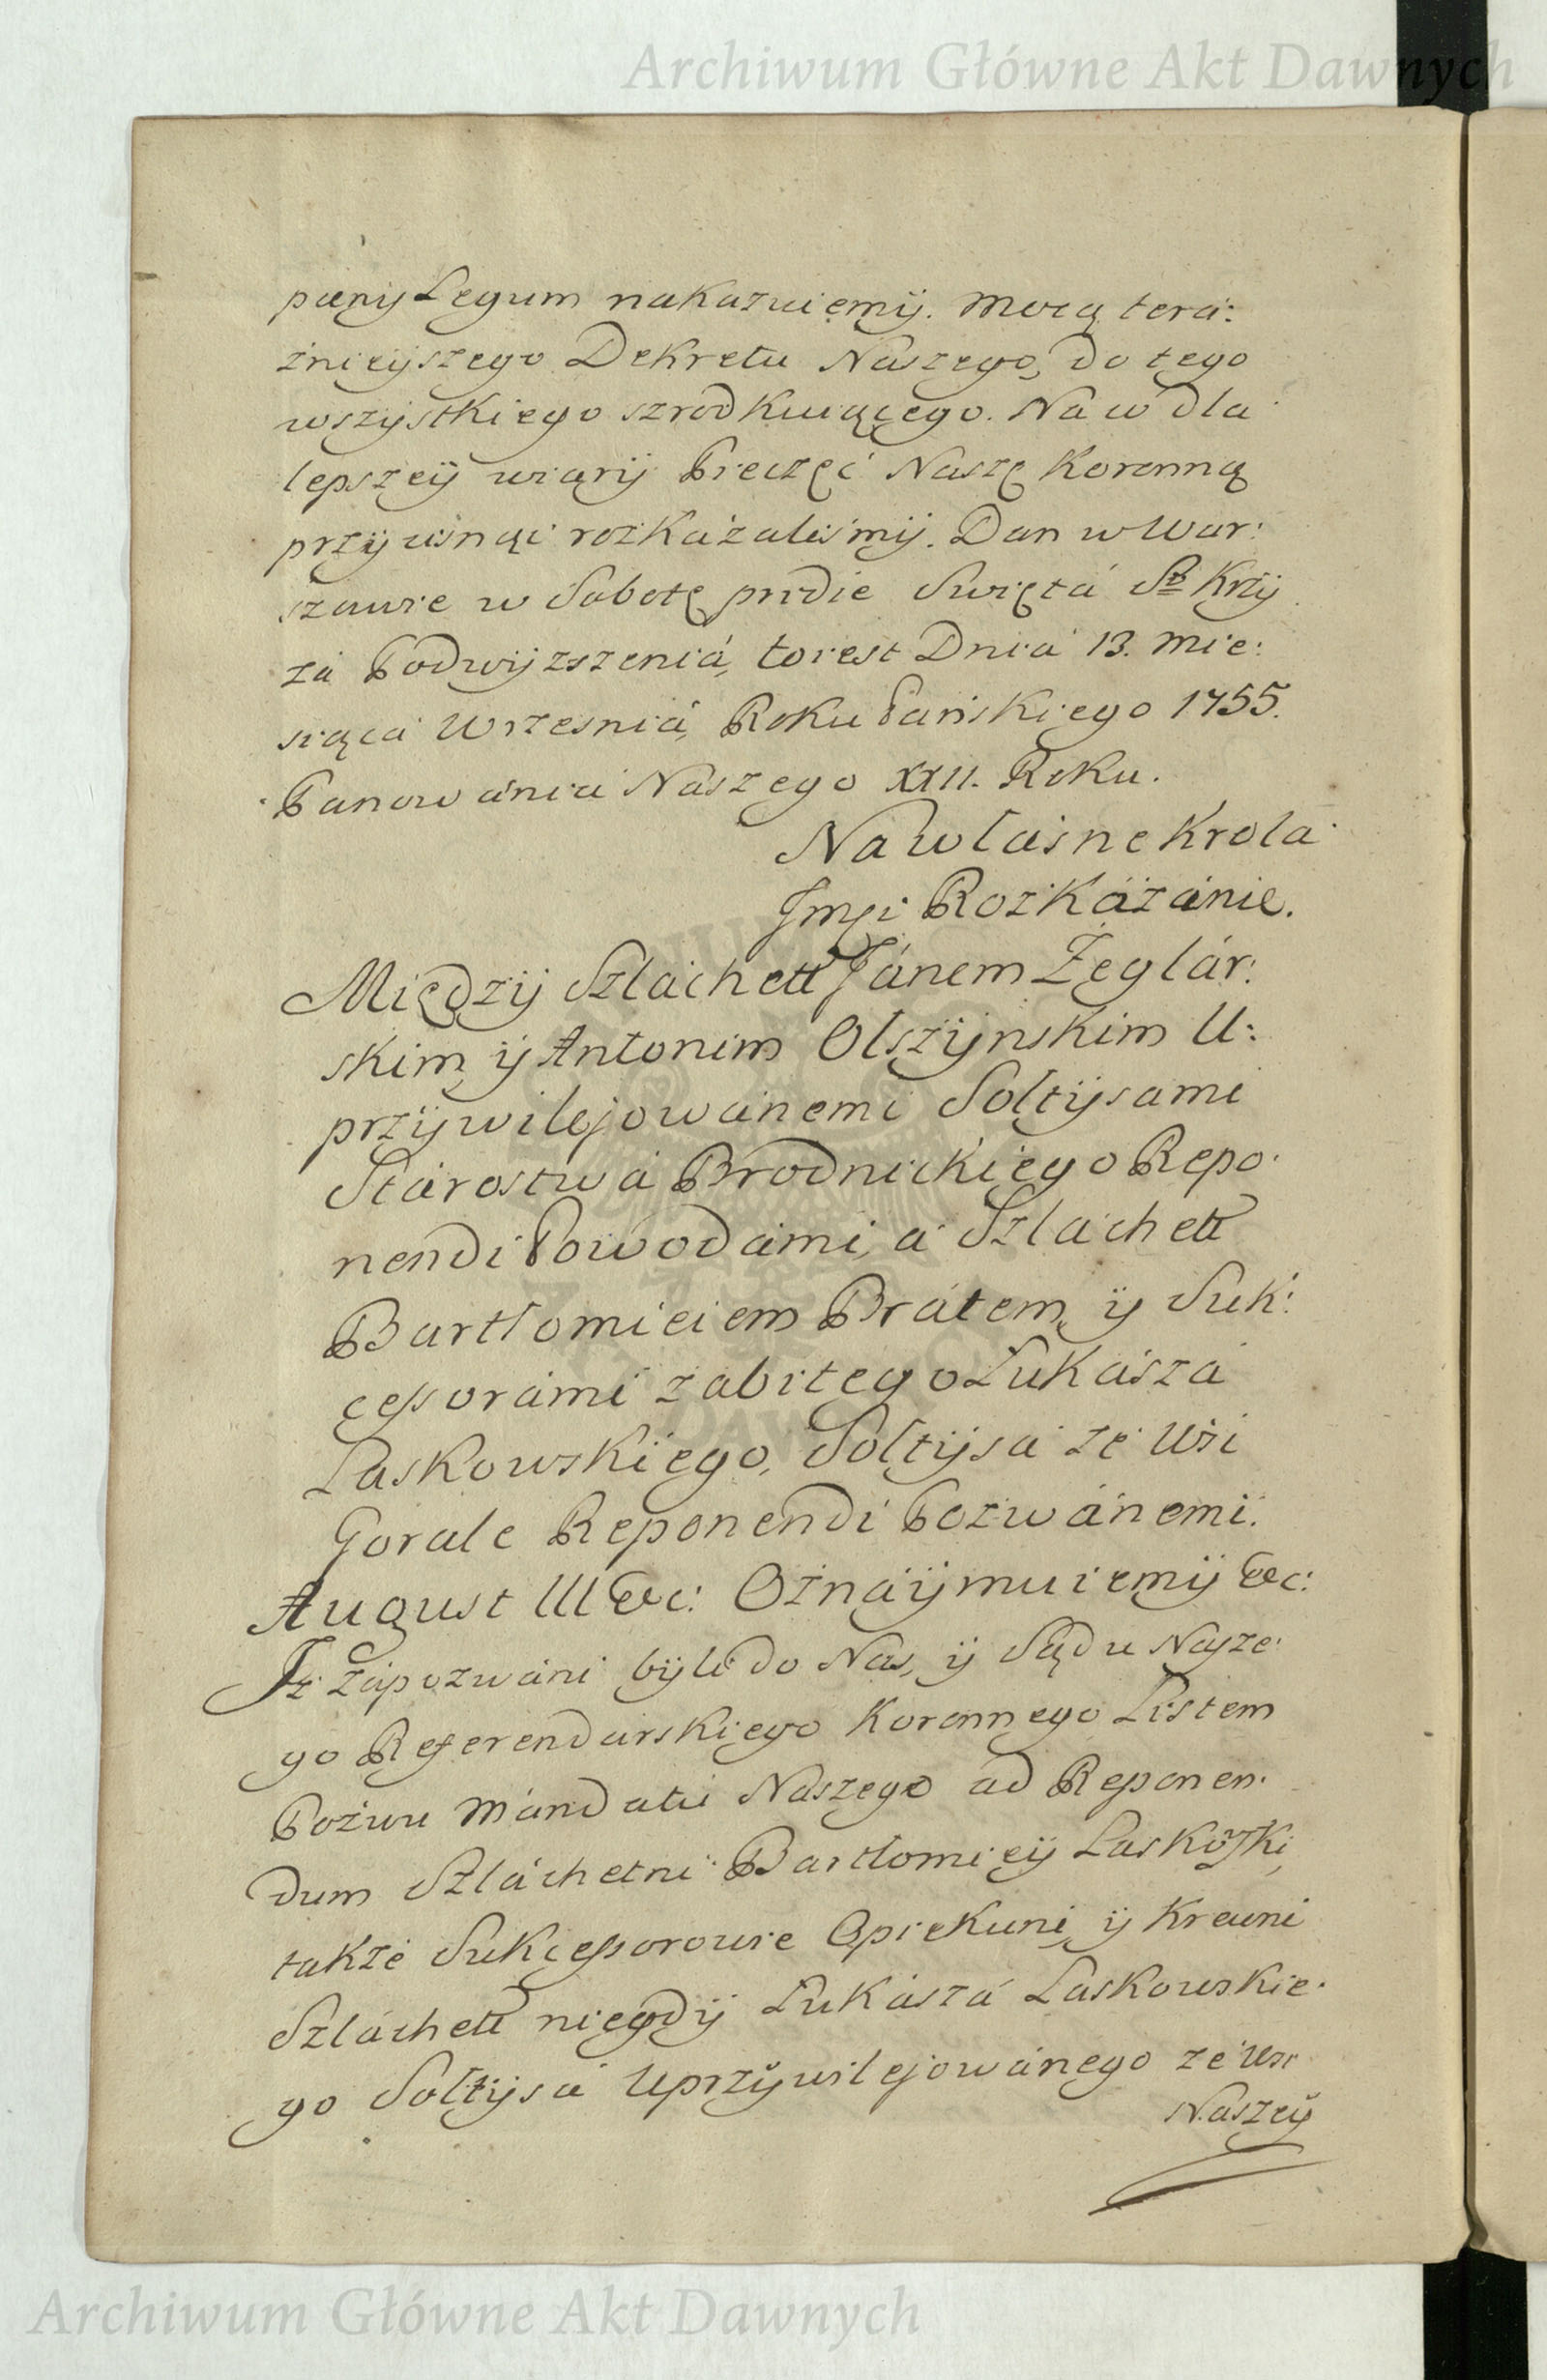 Archiwum Główne Akt Dawnych
pæny Legum nakazuiemÿ. Mocą terá:
znieÿszego Dekretu Naszego, do tego
wszÿstkiego szrodkuiącego. Na w dla
lepszeÿ wiarÿ Pieczęć Naszę Koronną
przÿcisnąć rozkázalismÿ. Dan w War:
szawie w Sobotę pridie Swiętá Sº Krzÿ
zá Podwÿzszeniá, to iest Dniá 13. Mie:
siącá Wrzesniá, Roku Pańskiego 1755.
Panowániá Naszego XXII. Roku.
Na własne Krola
Jmći Rozkázánie.
Międzÿ Szláchett Jánem Zeglár:
skim, ÿ Antonim Olszÿnskim U:
przÿwilejowánemi Sołtÿsami
Stárostwá Brodnickiego Repo:
nendi Powodámi, á Szláchett
Bartłomieiem Brátem, ÿ Suk:
cessorámi zabitego Łukászá
Laskowskiego, Sołtÿsá ze Wsi
Gorale Reponendi Pozwánemi.
August III &c: Oznáÿmuiemÿ &c:
Jż zápozwáni bÿli do Nas, ÿ Sądu Nasze:
go Referendarskiego Koronnego Listem
Pozwu Mándatu Naszego ad Reponen:
dum Szláchetni Bartłomieÿ Laskowski,
także Sukcessorowie Opiekuni, ÿ Krewni
Szláchett niegdÿ Łukászá Laskowskie:
go Sołtÿsá Uprzÿwilejowánego ze Wsi
Naszeÿ
Archiwum Główne Akt Dawnych